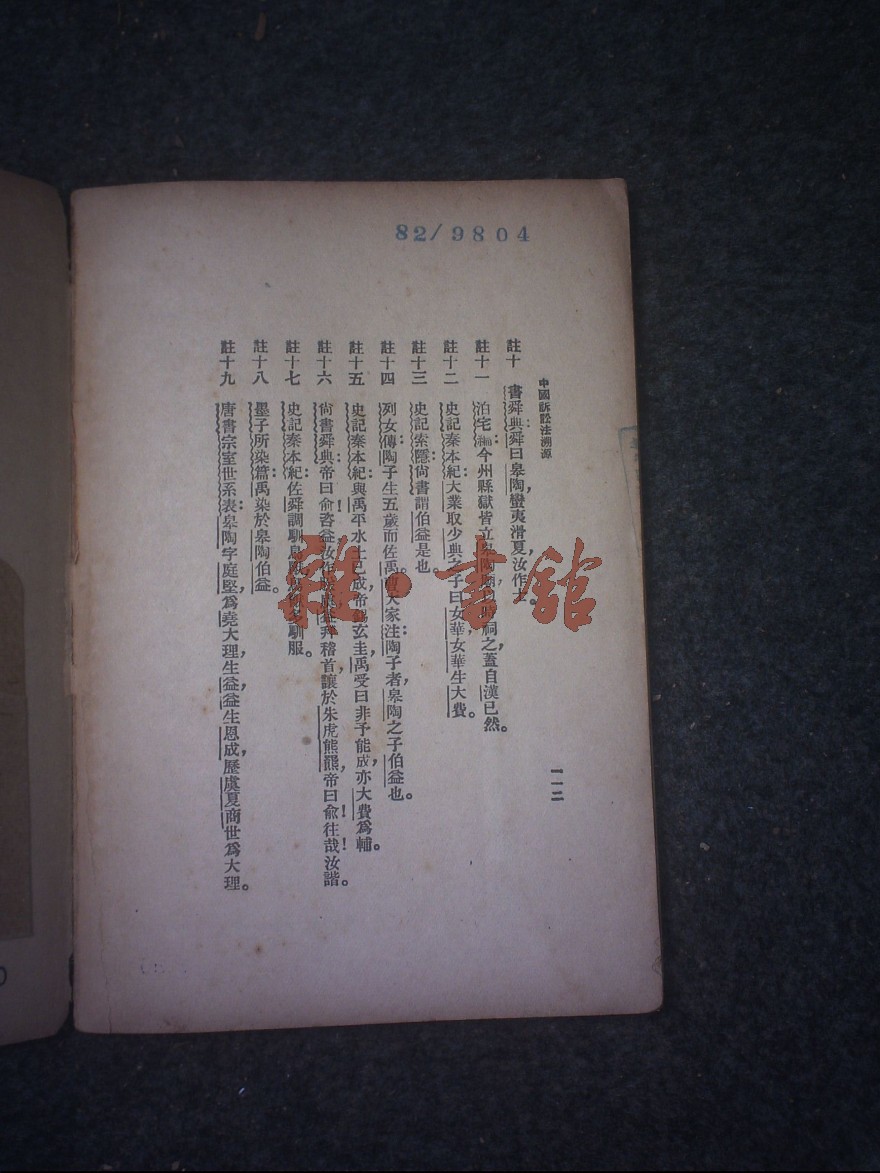 82/9804
中國訴訟法溯源
一一二
註十 書舜典:舜曰皋陶,蠻夷滑夏,汝作士。
註十一 泊宅編:今州縣獄皆立皋陶廟以時祠之,蓋自漢已然。
註十二 史記秦本紀:大業取少典之子曰女華,女華生大費。
註十三 史記索隱:尚書謂伯益是也。
註十四 列女傳:陶子生五歲而佐禹。曹大家注:陶子者,皋陶之子伯益也。
註十五 史記秦本紀:與禹平水土已成,帝錫玄圭,禹受曰非予能成,亦大費爲輔。
註十六 尚書舜典:帝曰俞!咨益汝作朕虞,益拜稽首,讓於朱虎熊羆,帝曰俞!往哉!汝諧。
註十七 史記秦本紀:佐舜調馴鳥獸,鳥獸多馴服。
註十八 墨子所染篇:禹染於皋陶伯益。
註十九 唐書宗室世系表:皋陶字庭堅,爲堯大理,生益,益生恩成,歷虞夏商世爲大理。
雜·書館